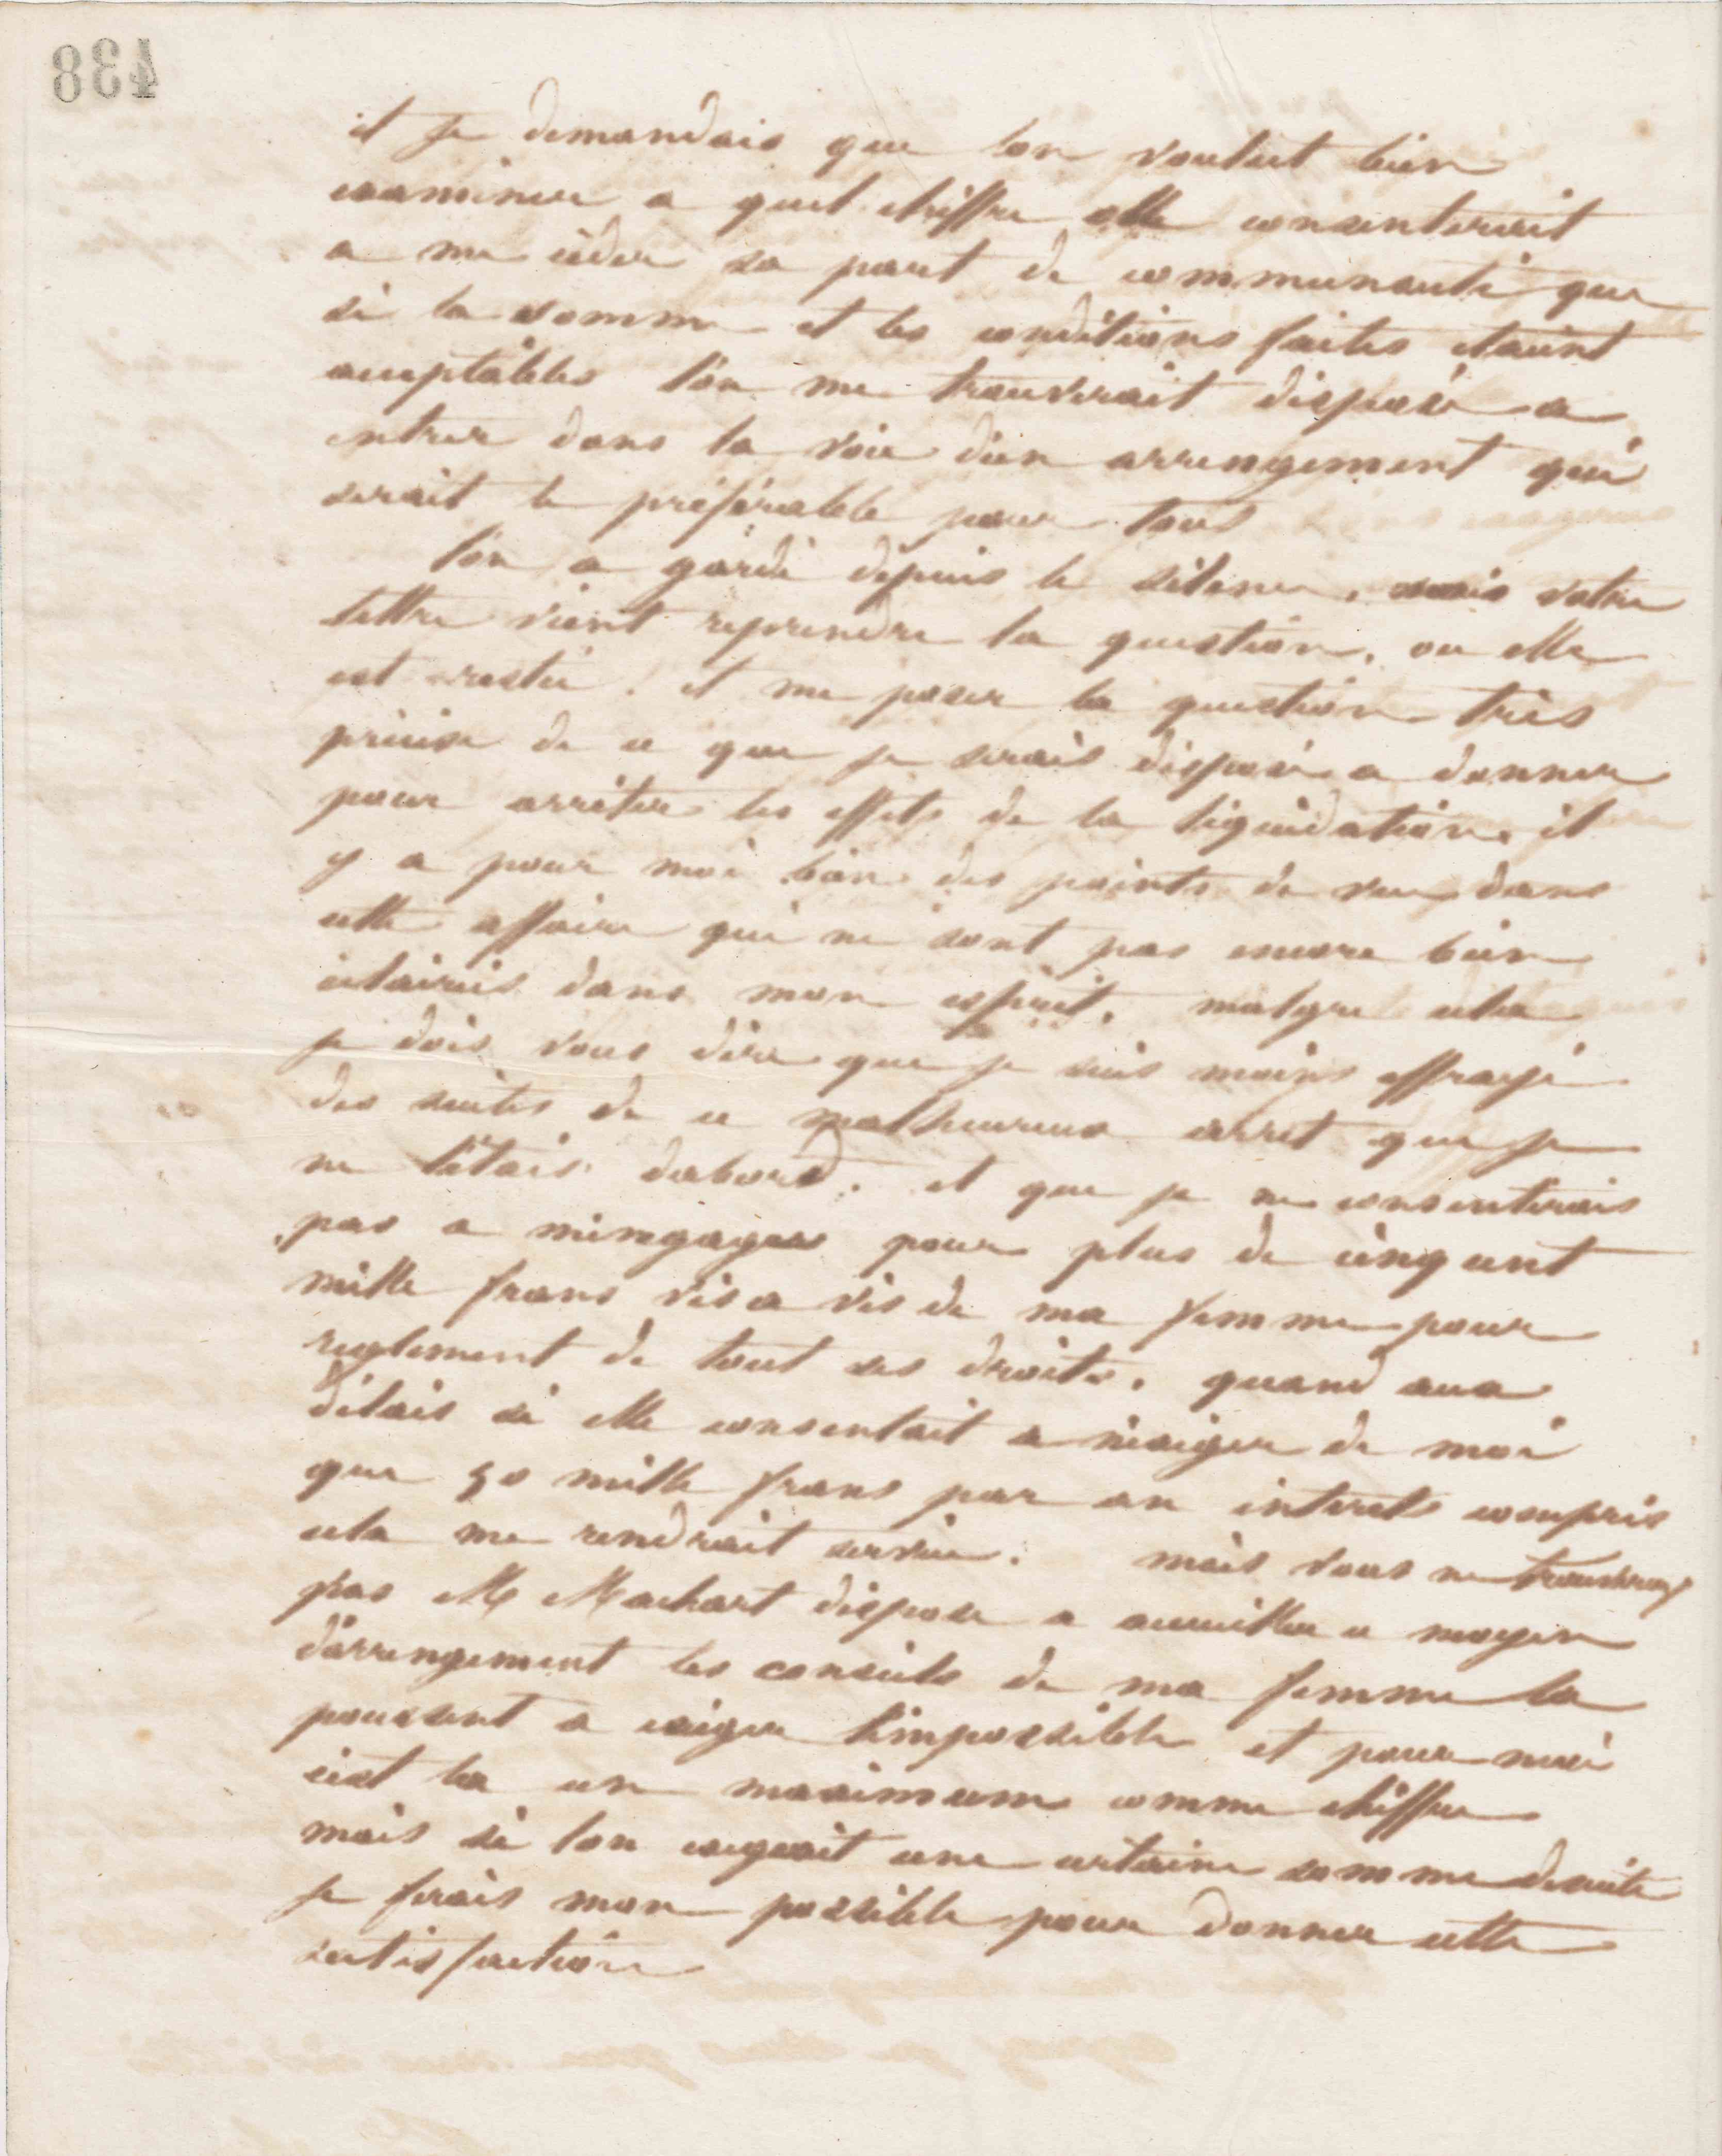 438
et je demandais que lon voulut bien
examiner a quel chiffre elle consenterait
a me céder sa part de communauté que
si la somme et les conditions faites etaient
acceptables l'on me trouverait disposé a
entrer dans la voie d'un arrengement qui
serait le préférable pour tous
l'on a gardé depuis le silence, mais votre
lettre vient reprendre la question, ou elle
est restée. et me poser la question très
précise de ce que je serais disposé a donner
pour arrêter les effets de la liquidation. il
y a pour moi bien des points de vue dans
cette affaire qui ne sont pas encore bien
éclaircis dans mon esprit. malgre cela
je dois vous dire que je suis moins effrayé
des suites de ce malheureux arret que je
ne l'étais dabord. et que je ne consentirais
pas a m'engager pour plus de cinq cent
mille francs vis a vis de ma femme pour
reglement de tout ses droits. quand aux
délais si elle consentait a n'éxiger de moi
que 50 mille francs par an interets compris
cela me rendrait service. mais vous ne trouverez
pas M Machart disposé a accueillir ce moyen
d'arrengement les conseils de ma femme la
poussent a exiger l'impossible et pour moi
c'est la un maximum comme chiffre
mais si lon exigeait une certaine somme desuite
je ferais mon possible pour donner cette
satisfaction